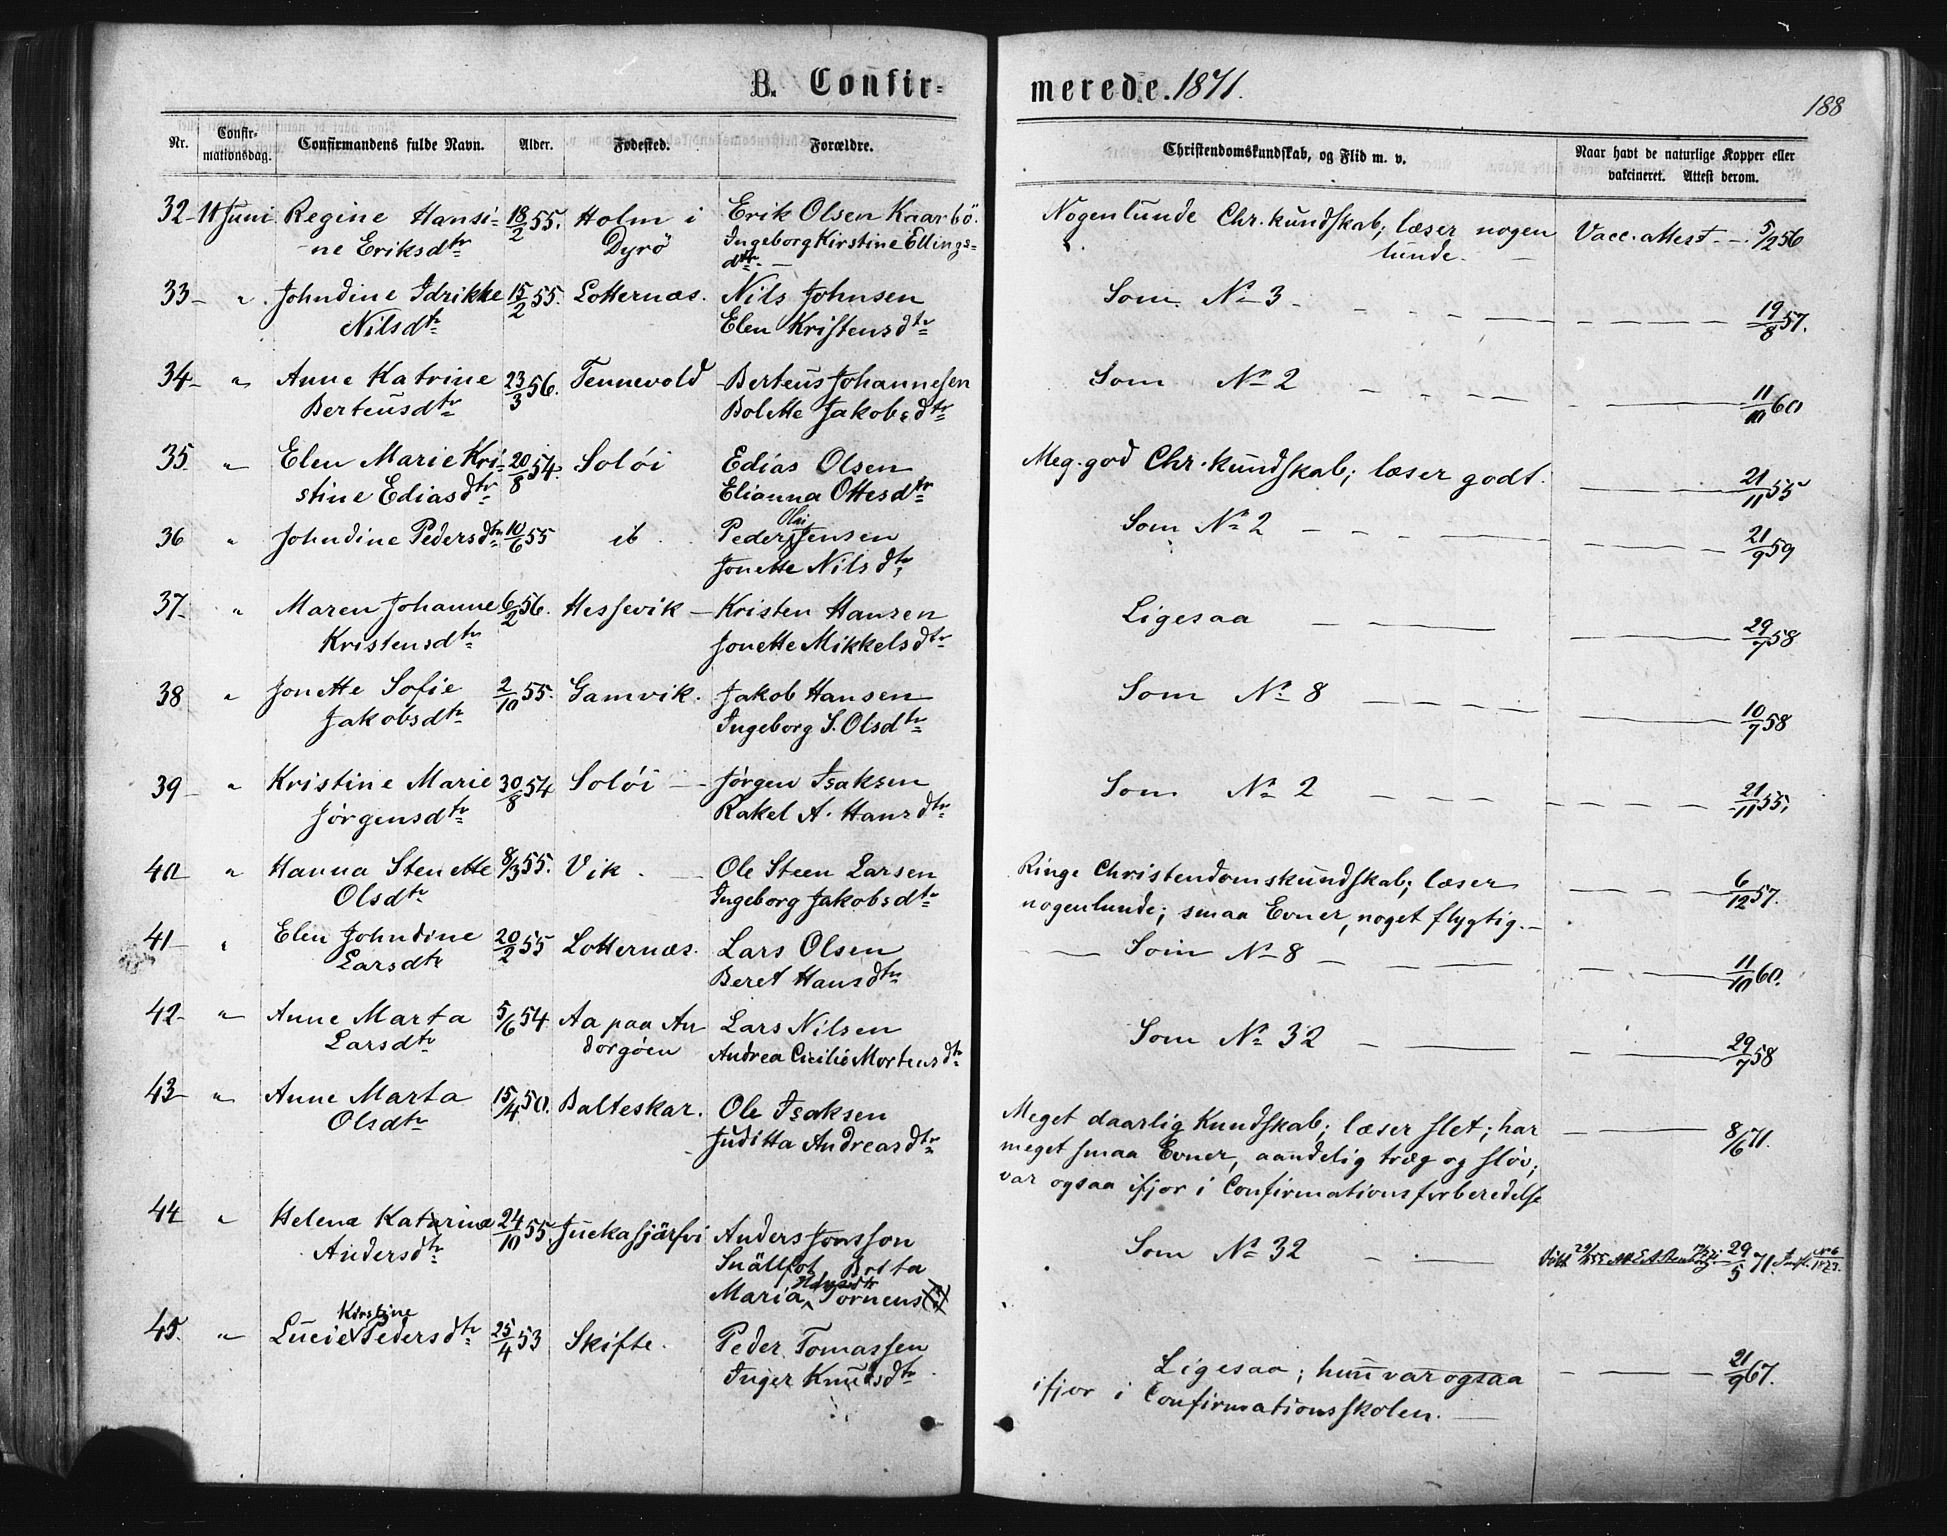 B. Confir-
merede. 1871.
188
Nr.
Confir-
mationsdag.
Confirmandens fulde Navn.
Alder.
Fødested.
Forældre.
Christendomskundskab, og Flid m. v.
Naar havt de naturlige Kopper eller
vakcineret. Attest derom.
32- 11 Juni Regine Hansi- 18/2 55. Holm i Erik Olsen Kaarbö. Nogenlunde Chr. kundskab; læser nogen Vacc. attest - 5/2 56
ne Eriksdtr Dyrö Ingeborg Kirstine Ellings- lunde.
dtr
33- " Johndine Idrikke 15/2 55. Lotternæs. Nils Johnsen Som Nr 3 - 19/8 57.
Nilsdtr Elen Kristensdtr
34- " Anne Katrine 23/3 56. Tennevold Berteus Johannesen Som Nr 2 11/10 60
Berteusdtr Bolette Jakobsdtr
35 " Elen Marie Kri- 20/8 54. Solöi Edias Olsen Meg. god Chr. kundskab; læser godt. 21/11 55
stine Ediasdtr Elianna Ottesdtr
36 " Johndine Pedersdtr 10/6 55 ib. Peder Olai Jensen Som Nr 2 21/9 59
Jonette Nilsdtr
37- " Maren Johanne 6/2 56. Hessevik - Kristen Hansen Ligesaa 29/7 58
Kristensdtr Jonette Mikkelsdtr
38 " Jonette Sofie 2/10 55. Gamvik. Jakob Hansen Som Nr 8 10/7 58
Jakobsdtr Ingeborg S. Olsdtr
39- " Kristine Marie 30/8 54 Solöi - Jörgen Isaksen Som Nr 2 21/11 55.
Jörgensdtr Rakel A. Hansdtr
40 " Hanna Stenette 8/3 55. Vik. Ole Steen Larsen Ringe Christendomskundskab; læser 6/12 57.
Olsdtr Ingeborg Jakobsdtr nogenlunde; smaa Evner, noget flygtig.-
41- " Elen Johndine 20/2 55 Lotternæs. Lars Olsen Som Nr 8 11/10 60.
Larsdtr Beret Hansdtr
42- " Anne Marta 5/6 54 Aa paa An Lars Nilsen Som Nr 32 29/7 58
Larsdtr dorgöen Andrea Cicilie Mortensdtr
43- " Anne Marta 15/4 50. Balteskar. Ole Isaksen Meget daarlig Kundskab; læser slet; har 8/6 71.
Olsdtr Juditta Andreasdtr meget smaa Evner, aandelig træg og slöv;
var ogsaa ifjor i Confirmationsforberedelse
44 " Helena Katarina 24/10 55. Juckasjärfvi Anders Jonsson Som Nr 32 29/5 71.
Andersdtr Snällfot Brita
Maria Tornens
45. " Lucie Kirstine Pedersdtr 25/4 53 Skifte. Peder Tomassen Ligesaa; hun var ogsaa 21/9 67.
Inger Knudsdtr ifjor i Confirmationsskolen.